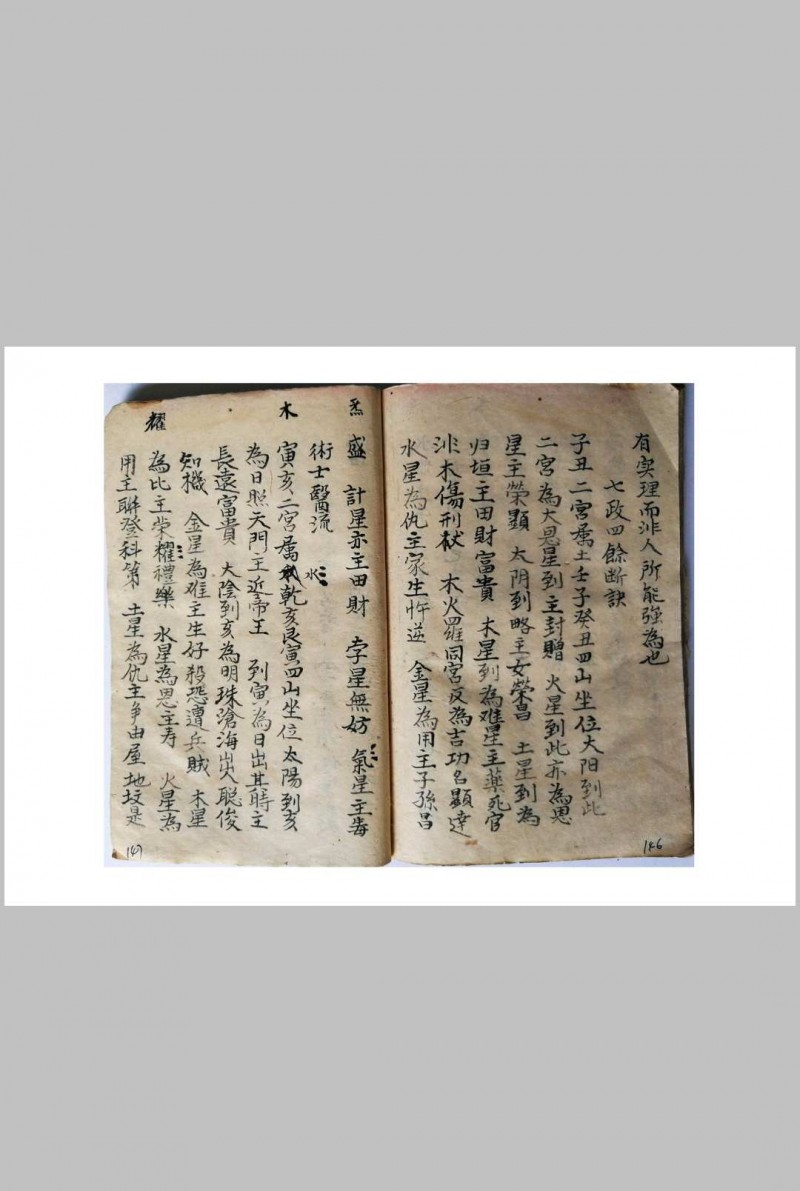 有实理而非人所能强為也
七政四餘断訣
子丑二宮属土壬子癸丑四山坐位大阳到此
二宮為大恩星到主封贈 火星到此亦為恩
星主榮顯 太阴到略主女榮昌 土星到為
归垣主田財富貴 木星到為难星主藥死官
非木傷刑狱 木火羅同宮反為吉功名顯達
水星為仇主家生忤逆 金星為用主子孫昌
盛 計星亦主田財 孛星無妨 氣星主毒
炁
術士醫流
木
寅亥二宮属乾亥艮寅四山坐位太陽到亥
水
為日照天門主近帝王 到寅為日出其時主
長遠富貴 太陰到亥為明珠滄海出人聪俊
知機 金星為难主生好殺恐遭兵賊 木星
為比主荣耀禮樂 水星為恩主寿 火星為
耀
用主聯登科第 土星為仇主争由屋地坟是
146
147